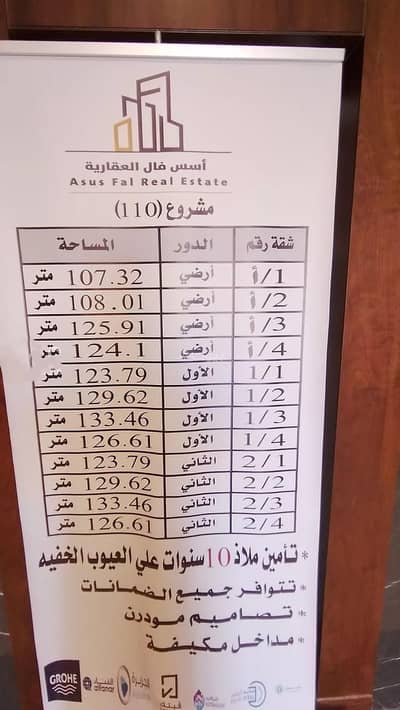 أسس فال العقارية
Asus Fal Real Estate
مشروع (110)
شقة رقم الدور المساحة
أ/1 أرضي 107.32 متر
أ/2 أرضي 108.01 متر
أ/3 أرضي 125.91 متر
أ/4 أرضي 124.1 متر
1/1 الأول 123.79 متر
1/2 الأول 129.62 متر
1/3 الأول 133.46 متر
1/4 الأول 126.61 متر
2/1 الثاني 123.79 متر
2/2 الثاني 129.62 متر
2/3 الثاني 133.46 متر
2/4 الثاني 126.61 متر
* تأمين ملاذ 10 سنوات علي العيوب الخفيه
* تتوافر جميع الضمانات
* تصاميم مودرن
* مداخل مكيفة
GROHE الفنار alfanar